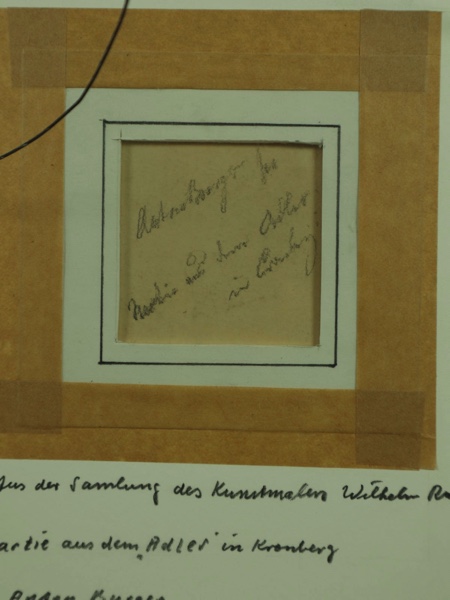 Anton Burger fec
Partie aus dem Adler
in Cronberg
Aus der Samlung des Kunstmalers Wilhelm
artie aus dem "Adler" in Kronberg
Anton Burger